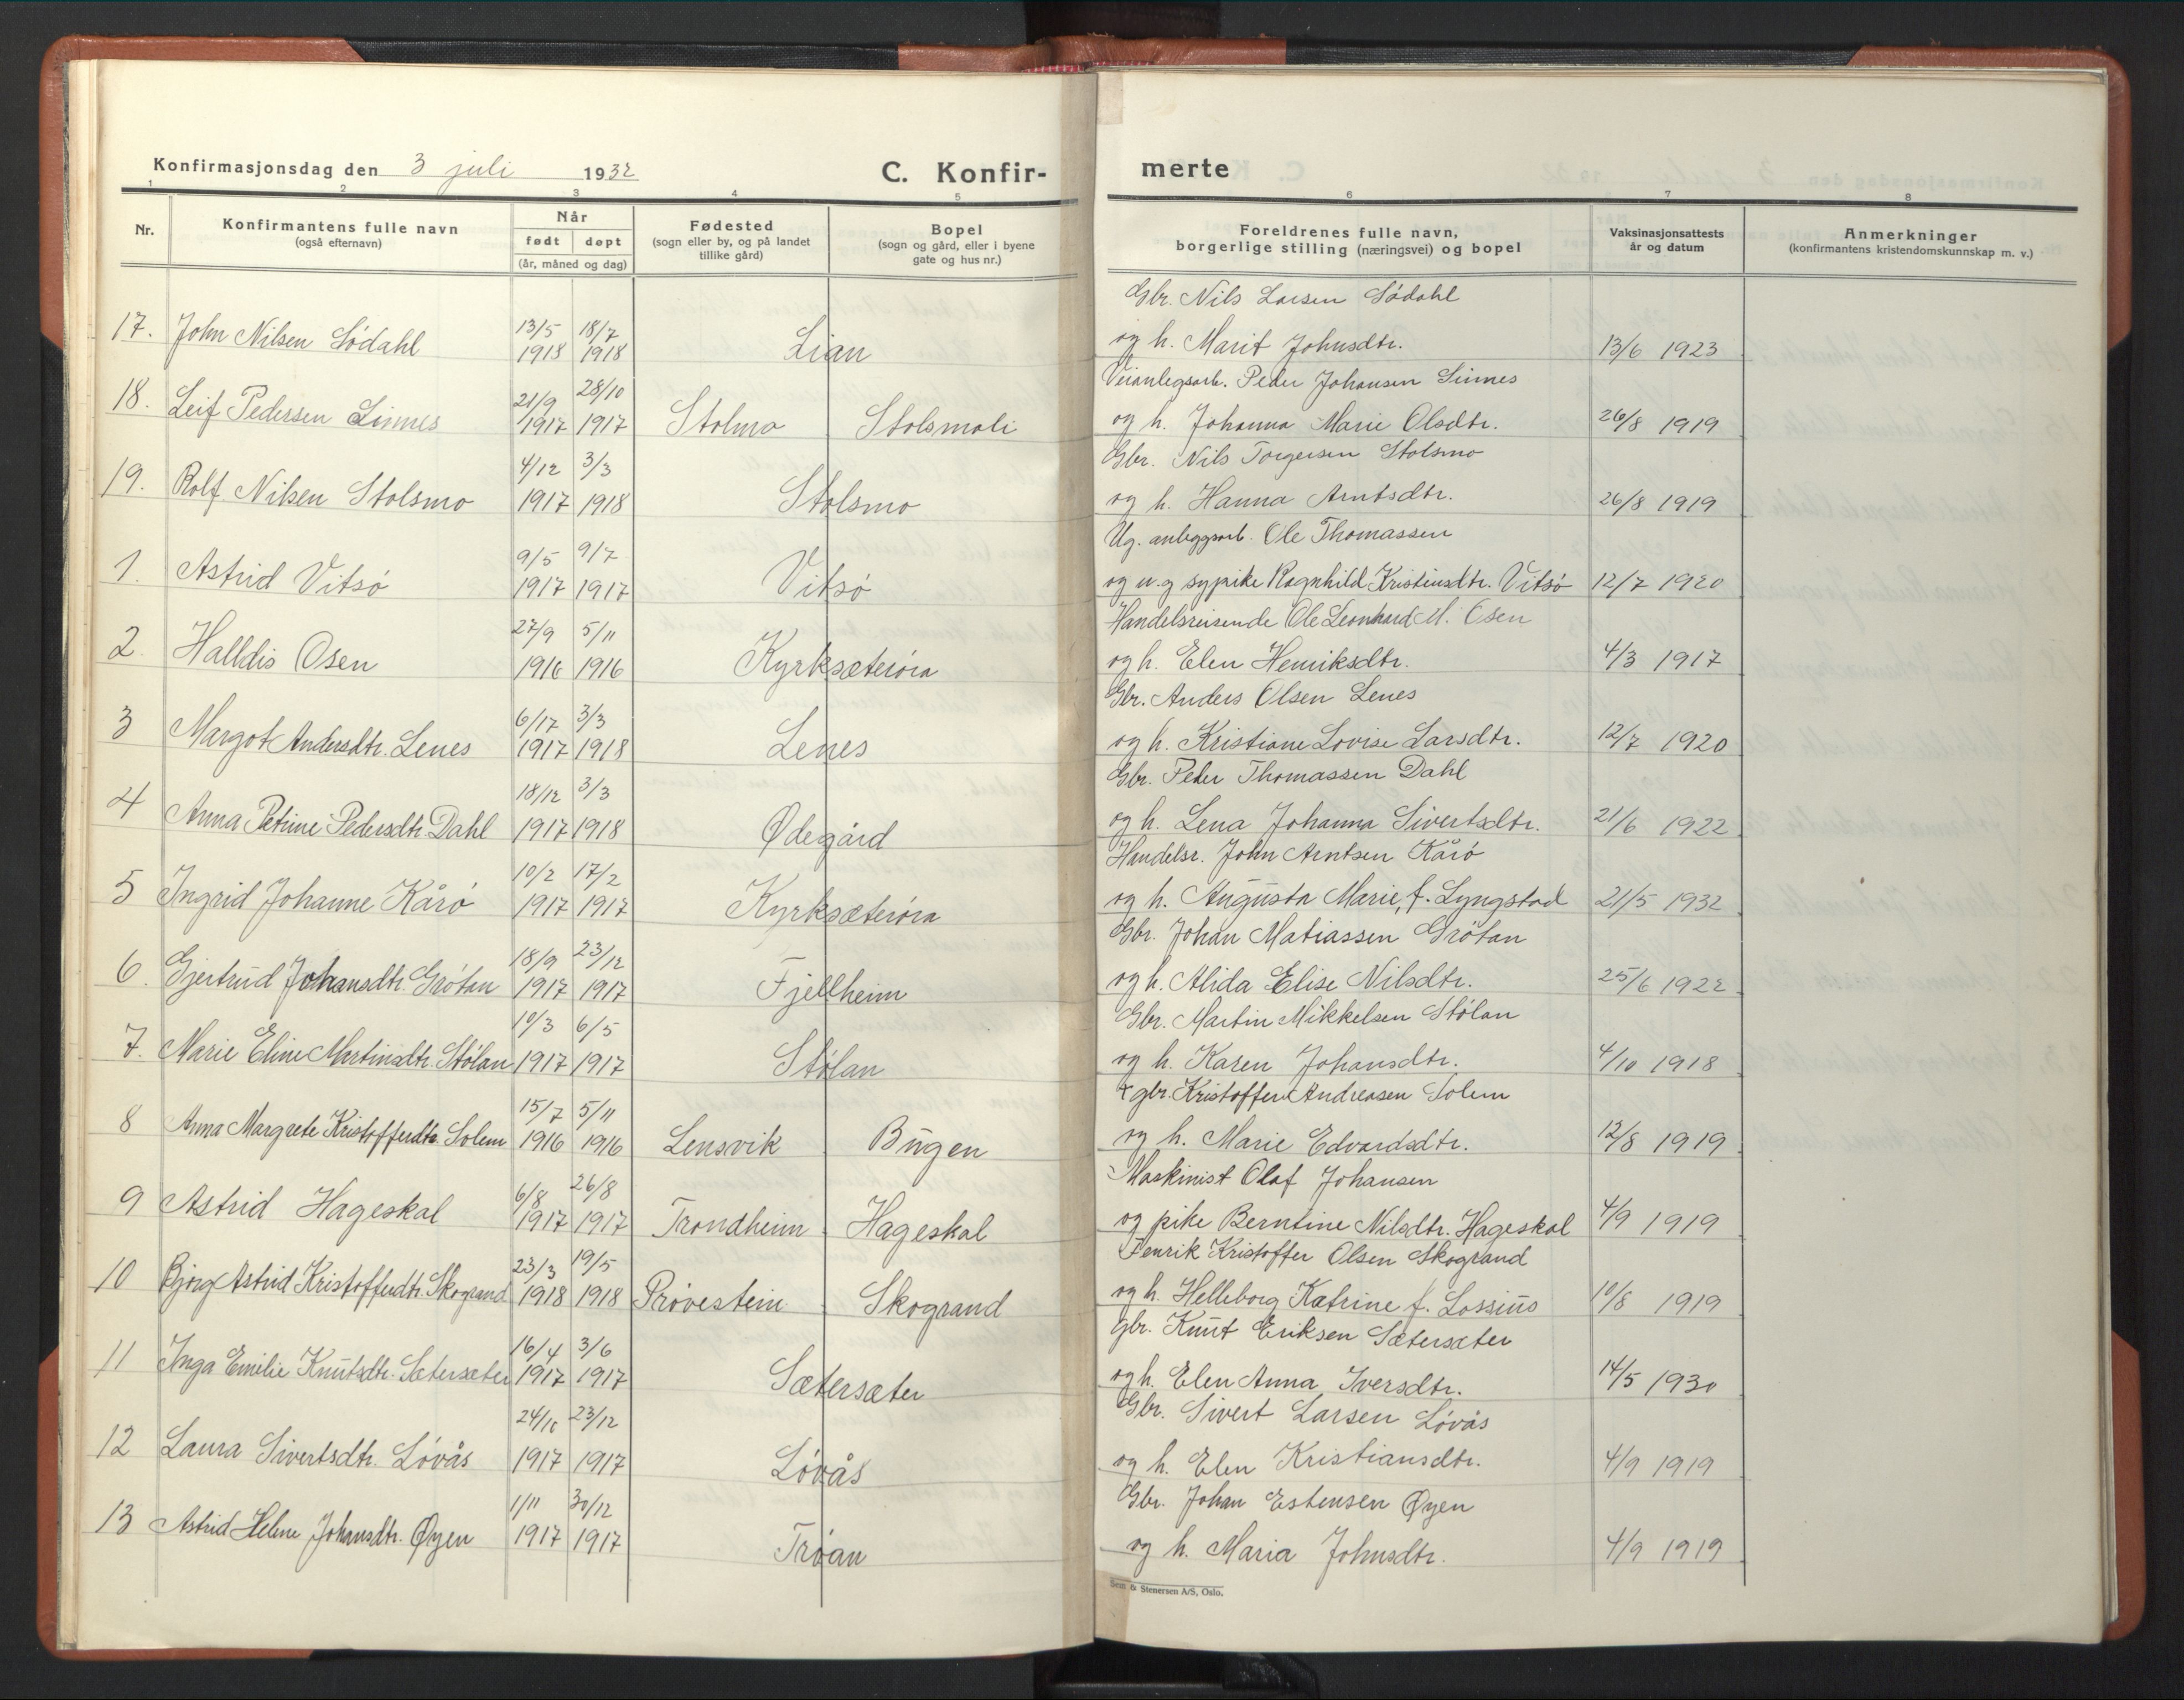 Konfirmasjonsdag den 3 juli 1932 C. Konfir- merte
1 2 3 4 5 6 7 8
Nr. Konfirmantens fulle navn (også efternavn) Når født døpt (år, måned og dag) Fødested (sogn eller by, og på landet tillike gård) Bopel (sogn og gård, eller i byene gate og hus nr.) Foreldrenes fulle navn, borgerlige stilling (næringsvei) og bopel Vaksinasjonsattests år og datum Anmerkninger (konfirmantens kristendomskunnskap m. v.)
13/5 18/7 Gbr. Nils Larsen Södahl
17. John Nilsen Södahl 1918 1918 Lian og h. Marit Johnsdtr. 13/6 1923
21/9 28/10 Veianlegsarb. Peder Johansen Linnes
18. Leif Pedersen Linnes 1917 1917 Stolmo Stolsmoli og h. Johanna Marie Olsdtr. 26/8 1919
4/12 3/3 Gbr. Nils Torgersen Stolsmo
19. Rolf Nilsen Stolsmo 1917 1918 Stolsmo og h. Hanna Arntsdtr. 26/8 1919
9/5 9/7 Ug. anleggsarb. Ole Thomassen
1. Astrid Vitsö 1917 1917 Vitsö og u.g sypike Ragnhild Kristensdtr. Vitsö 12/7 1920
27/9 5/11 Handelsreisende Ole Leonhard M. Osen
2. Halldis Osen 1916 1916 Kyrksæteröra og h. Elen Henriksdtr. 4/3 1917
6/17 3/3 Gbr. Anders Olsen Lenes
3 Margot Andersdtr. Lenes 1917 1918 Lenes og h. Kristiane Lovise Larsdtr. 12/7 1920
18/12 3/3 Gbr. Peder Thomassen Dahl
4 Anna Petrine Pedersdtr Dahl 1917 1918 Ødegård og h. Lena Johanna Sivertsdtr. 21/6 1922
10/2 17/2 Handelsr. John Arntsen Kårö
5 Ingrid Johanne Kårö 1917 1917 Kyrksæteröra og h. Augusta Marie, f. Lyngstad 21/5 1932
18/9 23/12 Gbr. Johan Matiassen Grötan
6. Gjertrud Johansdtr. Grötan 1917 1917 Fjellheim og h. Alida Elise Nilsdtr. 25/6 1922
10/3 6/5 Gbr. Martin Mikkelsen Stölan
7. Marie Eline Martinsdtr. Stölan 1917 1917 Stölan og h. Karen Johansdtr. 4/10 1918
15/7 5/11 + gbr. Kristoffer Andreasen Solem
8 Anna Margrete Kristofferdtr. Solem 1916 1916 Lensvik Bugen og h. Marie Edvardsdtr. 12/8 1919
6/8 26/8 Maskinist Olaf Johansen
9 Astrid Hageskal 1917 1917 Trondheim Hageskal og pike Berntine Nilsdtr. Hageskal 4/9 1919
23/3 19/5 Fenrik Kristoffer Olsen Skogrand
10 Bjorg Astrid Kristofferdtr. Skogrand 1918 1918 Prövestein Skogrand og h. Helleborg Katrine f. Lossius 10/8 1919
16/4 3/6 gbr. Knut Eriksen Sætersæter
11 Inga Emilie Knutsdtr. Sætersæter 1917 1917 Sætersæter og h. Elen Anna Iversdtr. 14/5 1930
24/10 23/12 Gbr. Sivert Larsen Lövås
12 Laura Sivertsdtr. Lövås 1917 1917 Lövås og h. Elen Kristiansdtr. 4/9 1919
1/11 30/12 Gbr. Johan Estensen Øyen
13 Astrid Helene Johansdtr. Øyen 1917 1917 Tröan og h. Maria Johnsdtr. 4/9 1919
Sem & Stenersen A/S, Oslo.